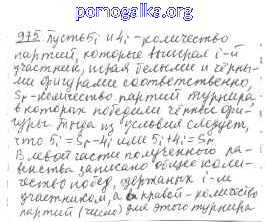 pomogalka.org
975 Пусть бi и чi - количество
партий, которые выиграл i-й
участник, играя белыми и чёрны-
ми фигурами соответственно,
Sр - количество партий турнира
в которых победили чёрные фи-
гуры. Тогда из условия следует,
что бi = Sр - чi или бi + чi = Sр
В левой части полученного ра-
венства записано общее коли-
чество побед, одержаных i-м
участником, а в правой - количество
партий (число) для этого турнира